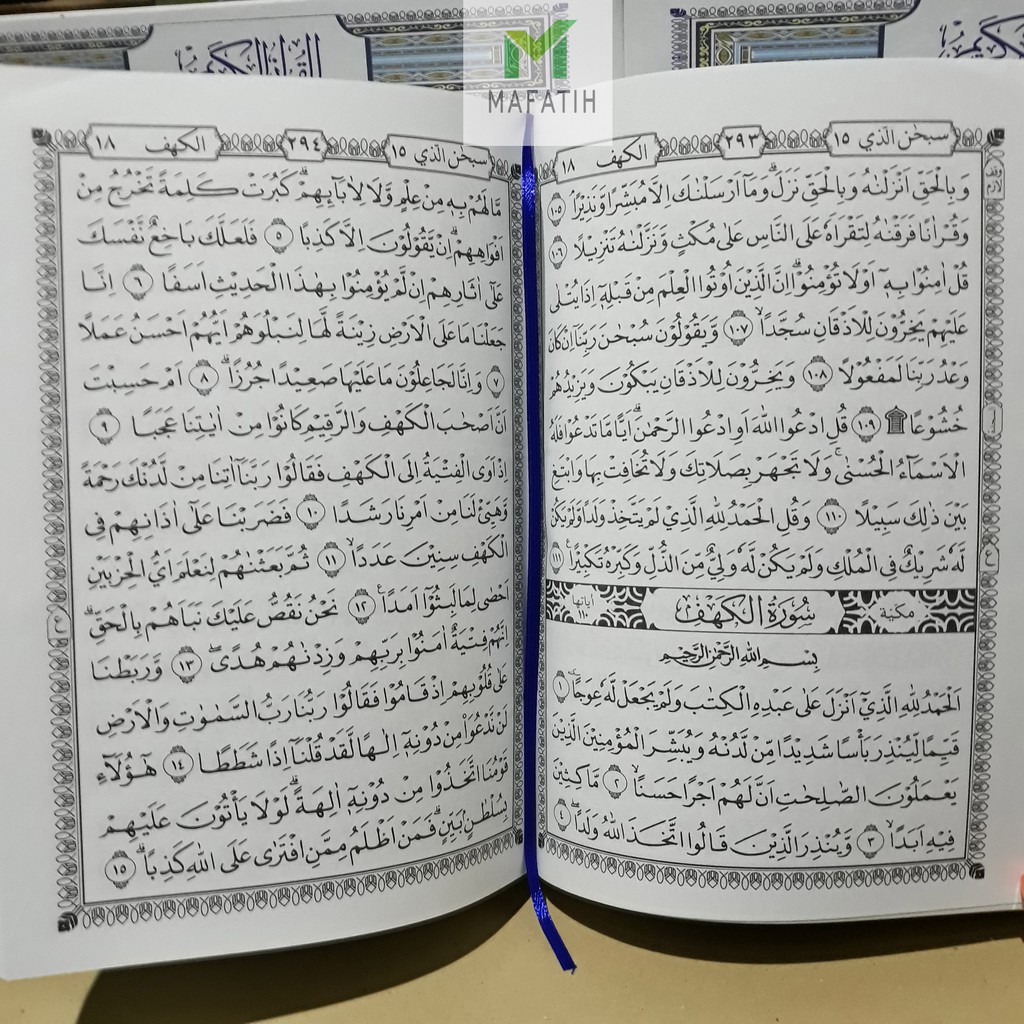 القرآن الكريم
MAFATIH
سبحٰن الّذي ١٥
٢٩٣
الكهف ١٨
وقف لازم
وَبِالْحَقِّ اَنْزَلْنٰهُ وَبِالْحَقِّ نَزَلَۗ وَمَآ اَرْسَلْنٰكَ اِلَّا مُبَشِّرًا وَّنَذِيْرًاۘ ١٠٥
وَقُرْاٰنًا فَرَقْنٰهُ لِتَقْرَاَهٗ عَلَى النَّاسِ عَلٰى مُكْثٍ وَّنَزَّلْنٰهُ تَنْزِيْلًا ١٠٦
قُلْ اٰمِنُوْا بِهٖٓ اَوْ لَا تُؤْمِنُوْاۗ اِنَّ الَّذِيْنَ اُوْتُوا الْعِلْمَ مِنْ قَبْلِهٖٓ اِذَا يُتْلٰى
عَلَيْهِمْ يَخِرُّوْنَ لِلْاَذْقَانِ سُجَّدًاۙ ١٠٧ وَّيَقُوْلُوْنَ سُبْحٰنَ رَبِّنَآ اِنْ كَانَ
وَعْدُ رَبِّنَا لَمَفْعُوْلًا ١٠٨ وَيَخِرُّوْنَ لِلْاَذْقَانِ يَبْكُوْنَ وَيَزِيْدُهُمْ
خُشُوْعًا ۩ ١٠٩ قُلِ ادْعُوا اللّٰهَ اَوِ ادْعُوا الرَّحْمٰنَۗ اَيًّا مَّا تَدْعُوْا فَلَهُ
الْاَسْمَاۤءُ الْحُسْنٰىۚ وَلَا تَجْهَرْ بِصَلَاتِكَ وَلَا تُخَافِتْ بِهَا وَابْتَغِ
بَيْنَ ذٰلِكَ سَبِيْلًا ١١٠ وَقُلِ الْحَمْدُ لِلّٰهِ الَّذِيْ لَمْ يَتَّخِذْ وَلَدًا وَّلَمْ يَكُنْ
لَّهٗ شَرِيْكٌ فِى الْمُلْكِ وَلَمْ يَكُنْ لَّهٗ وَلِيٌّ مِّنَ الذُّلِّ وَكَبِّرْهُ تَكْبِيْرًا ١١١
مكية سُوْرَةُ الْكَهْفِ اٰياتها ١١٠
بِسْمِ اللّٰهِ الرَّحْمٰنِ الرَّحِيْمِ
اَلْحَمْدُ لِلّٰهِ الَّذِيْٓ اَنْزَلَ عَلٰى عَبْدِهِ الْكِتٰبَ وَلَمْ يَجْعَلْ لَّهٗ عِوَجًاۜ ١
قَيِّمًا لِّيُنْذِرَ بَأْسًا شَدِيْدًا مِّنْ لَّدُنْهُ وَيُبَشِّرَ الْمُؤْمِنِيْنَ الَّذِيْنَ
يَعْمَلُوْنَ الصّٰلِحٰتِ اَنَّ لَهُمْ اَجْرًا حَسَنًاۙ ٢ مَّاكِثِيْنَ
فِيْهِ اَبَدًاۙ ٣ وَّيُنْذِرَ الَّذِيْنَ قَالُوا اتَّخَذَ اللّٰهُ وَلَدًاۖ ٤
سبحٰن الّذي ١٥
٢٩٤
الكهف ١٨
مَّا لَهُمْ بِهٖ مِنْ عِلْمٍ وَّلَا لِاٰبَاۤىِٕهِمْۗ كَبُرَتْ كَلِمَةً تَخْرُجُ مِنْ
اَفْوَاهِهِمْۗ اِنْ يَّقُوْلُوْنَ اِلَّا كَذِبًا ٥ فَلَعَلَّكَ بَاخِعٌ نَّفْسَكَ
عَلٰٓى اٰثَارِهِمْ اِنْ لَّمْ يُؤْمِنُوْا بِهٰذَا الْحَدِيْثِ اَسَفًا ٦ اِنَّا
جَعَلْنَا مَا عَلَى الْاَرْضِ زِيْنَةً لَّهَا لِنَبْلُوَهُمْ اَيُّهُمْ اَحْسَنُ عَمَلًا
٧ وَاِنَّا لَجَاعِلُوْنَ مَا عَلَيْهَا صَعِيْدًا جُرُزًاۗ ٨ اَمْ حَسِبْتَ
اَنَّ اَصْحٰبَ الْكَهْفِ وَالرَّقِيْمِ كَانُوْا مِنْ اٰيٰتِنَا عَجَبًا ٩
اِذْ اَوَى الْفِتْيَةُ اِلَى الْكَهْفِ فَقَالُوْا رَبَّنَآ اٰتِنَا مِنْ لَّدُنْكَ رَحْمَةً
وَّهَيِّئْ لَنَا مِنْ اَمْرِنَا رَشَدًا ١٠ فَضَرَبْنَا عَلٰٓى اٰذَانِهِمْ فِى
الْكَهْفِ سِنِيْنَ عَدَدًاۙ ١١ ثُمَّ بَعَثْنٰهُمْ لِنَعْلَمَ اَيُّ الْحِزْبَيْنِ
اَحْصٰى لِمَا لَبِثُوْٓا اَمَدًا ١٢ نَحْنُ نَقُصُّ عَلَيْكَ نَبَاَهُمْ بِالْحَقِّۗ
اِنَّهُمْ فِتْيَةٌ اٰمَنُوْا بِرَبِّهِمْ وَزِدْنٰهُمْ هُدًىۖ ١٣ وَّرَبَطْنَا
عَلٰى قُلُوْبِهِمْ اِذْ قَامُوْا فَقَالُوْا رَبُّنَا رَبُّ السَّمٰوٰتِ وَالْاَرْضِ
لَنْ نَّدْعُوَا۟ مِنْ دُوْنِهٖٓ اِلٰهًا لَّقَدْ قُلْنَآ اِذًا شَطَطًا ١٤ هٰٓؤُلَاۤءِ
قَوْمُنَا اتَّخَذُوْا مِنْ دُوْنِهٖٓ اٰلِهَةًۗ لَوْلَا يَأْتُوْنَ عَلَيْهِمْ
بِسُلْطٰنٍۢ بَيِّنٍۗ فَمَنْ اَظْلَمُ مِمَّنِ افْتَرٰى عَلَى اللّٰهِ كَذِبًاۗ ١٥